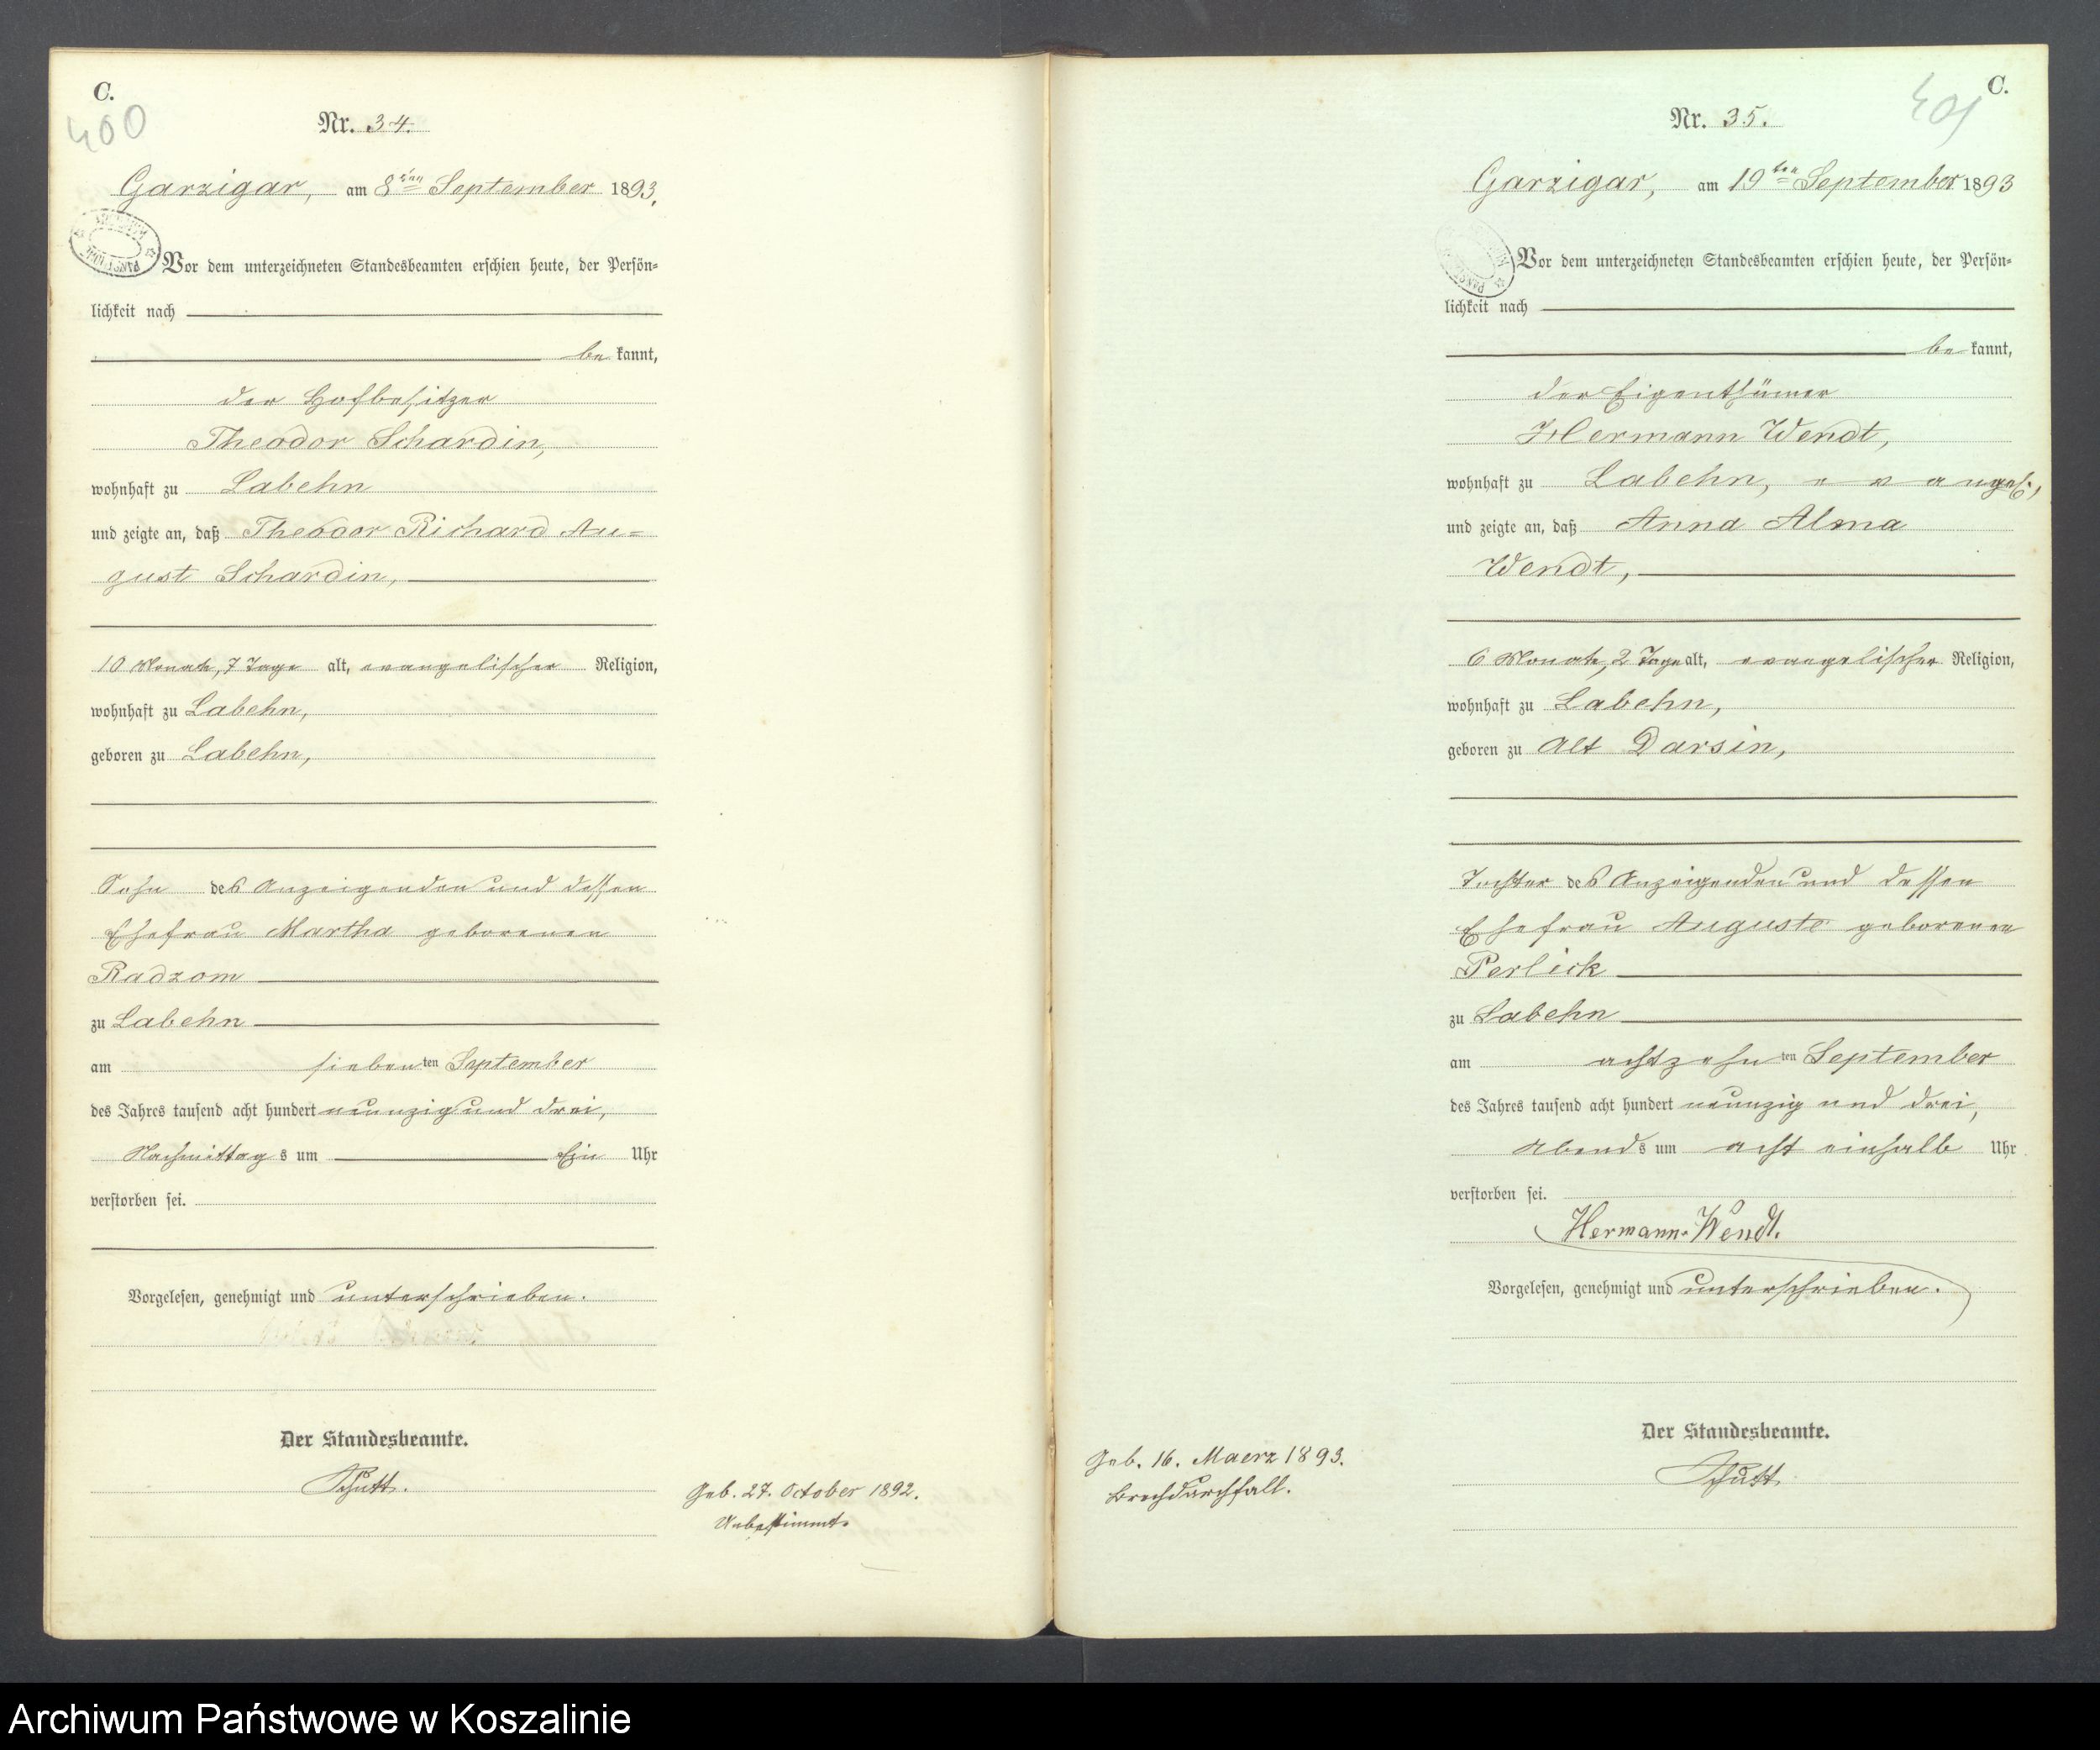 C.
400
Nr. 34.
Garzigar, am 8ten September 1893.
Vor dem unterzeichneten Standesbeamten erschien heute, der Persön-
lichkeit nach
be kannt,
der Hofbesitzer
Theodor Schardin,
wohnhaft zu Labehn
und zeigte an, daß Theodor Richard Au-
gust Schardin,
10 Monate, 7 Tage alt, evangelischer Religion,
wohnhaft zu Labehn,
geboren zu Labehn,
Sohn des Anzeigenden und dessen
Ehefrau Martha geborenen
Radzom
zu Labehn
am siebenten September
des Jahres tausend acht hundert neunzig und drei,
Nachmittags um Ein Uhr
verstorben sei.
Vorgelesen, genehmigt und unterschrieben.
Der Standesbeamte.
Schutt.
Geb. 27. October 1892.
Unbestimmt.
C.
401
Nr. 35.
Garzigar, am 19ten September 1893
Vor dem unterzeichneten Standesbeamten erschien heute, der Persön-
lichkeit nach
be kannt,
der Eigenthümer
Hermann Wendt,
wohnhaft zu Labehn, evangel.,
und zeigte an, daß Anna Alma
Wendt,
6 Monate, 2 Tage alt, evangelischer Religion,
wohnhaft zu Labehn,
geboren zu Alt Darsin,
Tochter des Anzeigenden und dessen
Ehefrau Auguste geborenen
Perlick
zu Labehn
am achtzehnten September
des Jahres tausend acht hundert neunzig und drei,
Abends um acht einhalb Uhr
verstorben sei.
Hermann Wendt.
Vorgelesen, genehmigt und unterschrieben.
Der Standesbeamte.
Schutt.
Geb. 16. Maerz 1893.
Brechdurchfall.
Archiwum Państwowe w Koszalinie